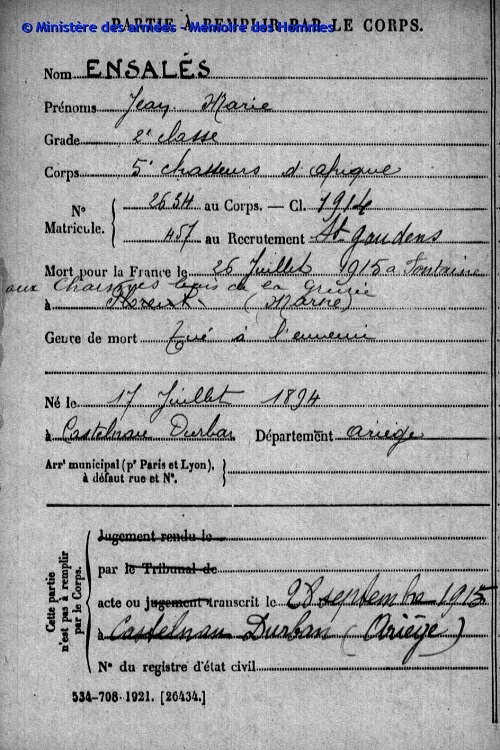 PARTIE À REMPLIR PAR LE CORPS.
© Ministère des armées - Mémoire des Hommes
Nom ENSALÉS
Prénoms Jean Marie
Grade 2e classe
Corps 5e chasseurs d'afrique
No Matricule. 2634 au Corps. — Cl. 1914
457 au Recrutement St gaudens
Mort pour la France le 26 Juillet 1915 a Fontaine
aux Charmes bois de la Grurie
à Florent (Marne)
Genre de mort Tué à l'ennemi
Né le 17 Juillet 1894
à Castelnau Durban Département ariège
Arrt municipal (pr Paris et Lyon),
à défaut rue et No.
Cette partie n'est pas à remplir par le Corps.
Jugement rendu le
par le Tribunal de
acte ou jugement transcrit le 28 septembre 1915
à Castelnau Durban (Ariège)
No du registre d'état civil
534-708-1921. [26434.]